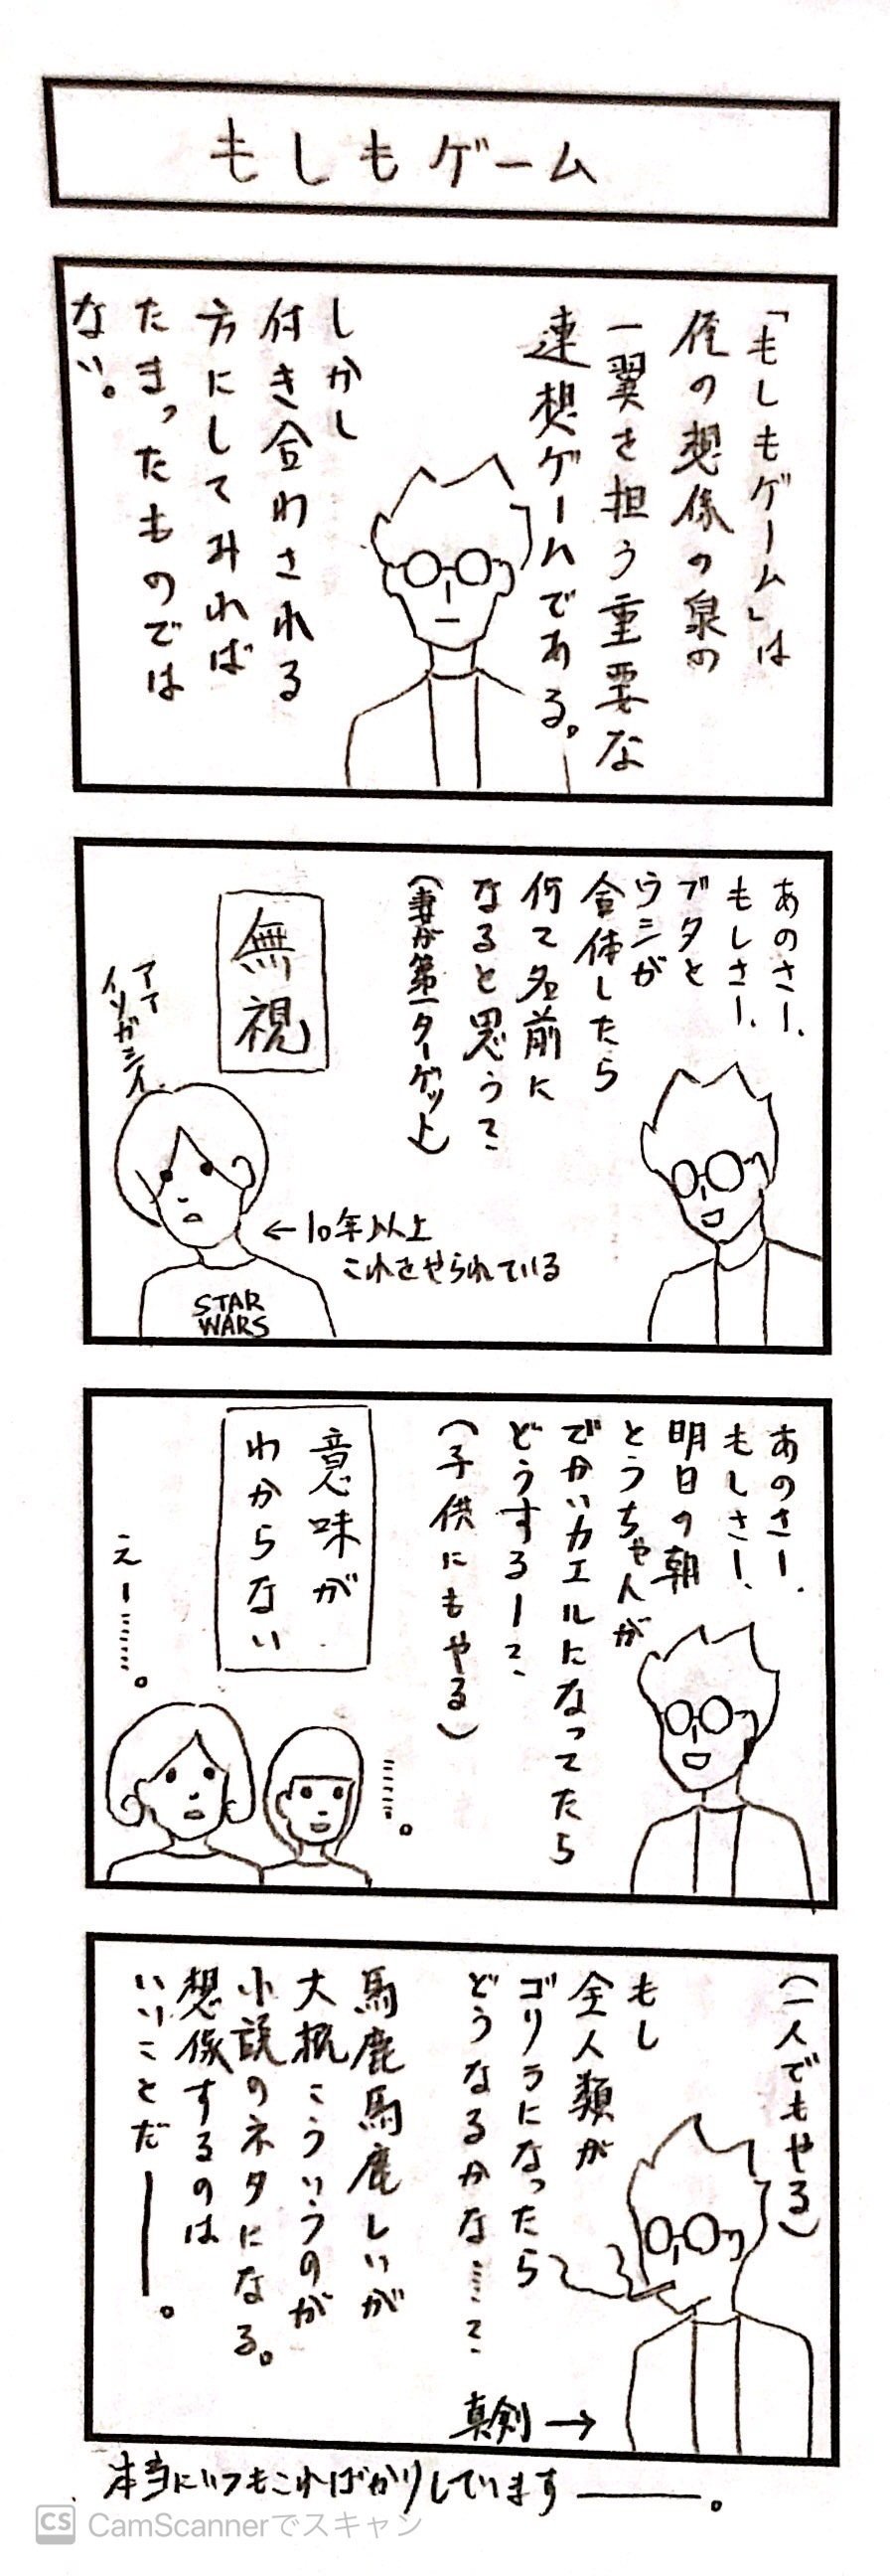 もしもゲーム
「もしもゲーム」は
俺の想像の泉の
一翼を担う重要な
連想ゲームである。
しかし
付き合わされる
方にしてみれば
たまったものでは
ない。
あのさー、
もしさー、
ブタと
ウシが
合体したら
何て名前に
なると思う?
(妻が第一ターゲット)
無視
アア
イソガシイ
←10年以上
これをやられている
STAR
WARS
あのさー、
もしさー、
明日の朝
とうちゃんが
でかいカエルになってたら
どうするー?
(子供にもやる)
意味が
わからない
……。
えー……。
(一人でもやる)
もし
全人類が
ゴリラになったら
どうなるかな……?
馬鹿馬鹿しいが
大抵こういうのが
小説のネタになる。
想像するのは
いいことだ――。
真剣→
本当にいつもこればかりしています――。
CS CamScannerでスキャン